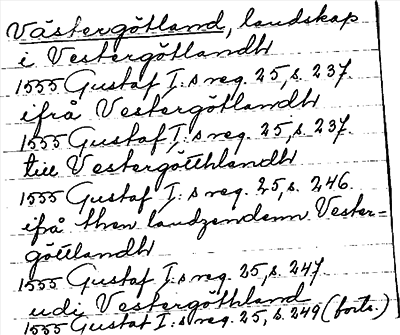 Västergötland, landskap
i Vestergötlandh
1555 Gustaf I:s reg. 25, s. 237.
ifrå Vestergötlandh
1555 Gustaf I:s reg. 25, s. 237.
till Vestergötthlandh
1555 Gustaf I:s reg. 25, s. 246.
ifå then landzendenn Vester=
göttlandh
1555 Gustaf I:s reg. 25, s. 247.
udi Vestergöthland
1555 Gustaf I:s reg. 25, s. 249 (forts.)